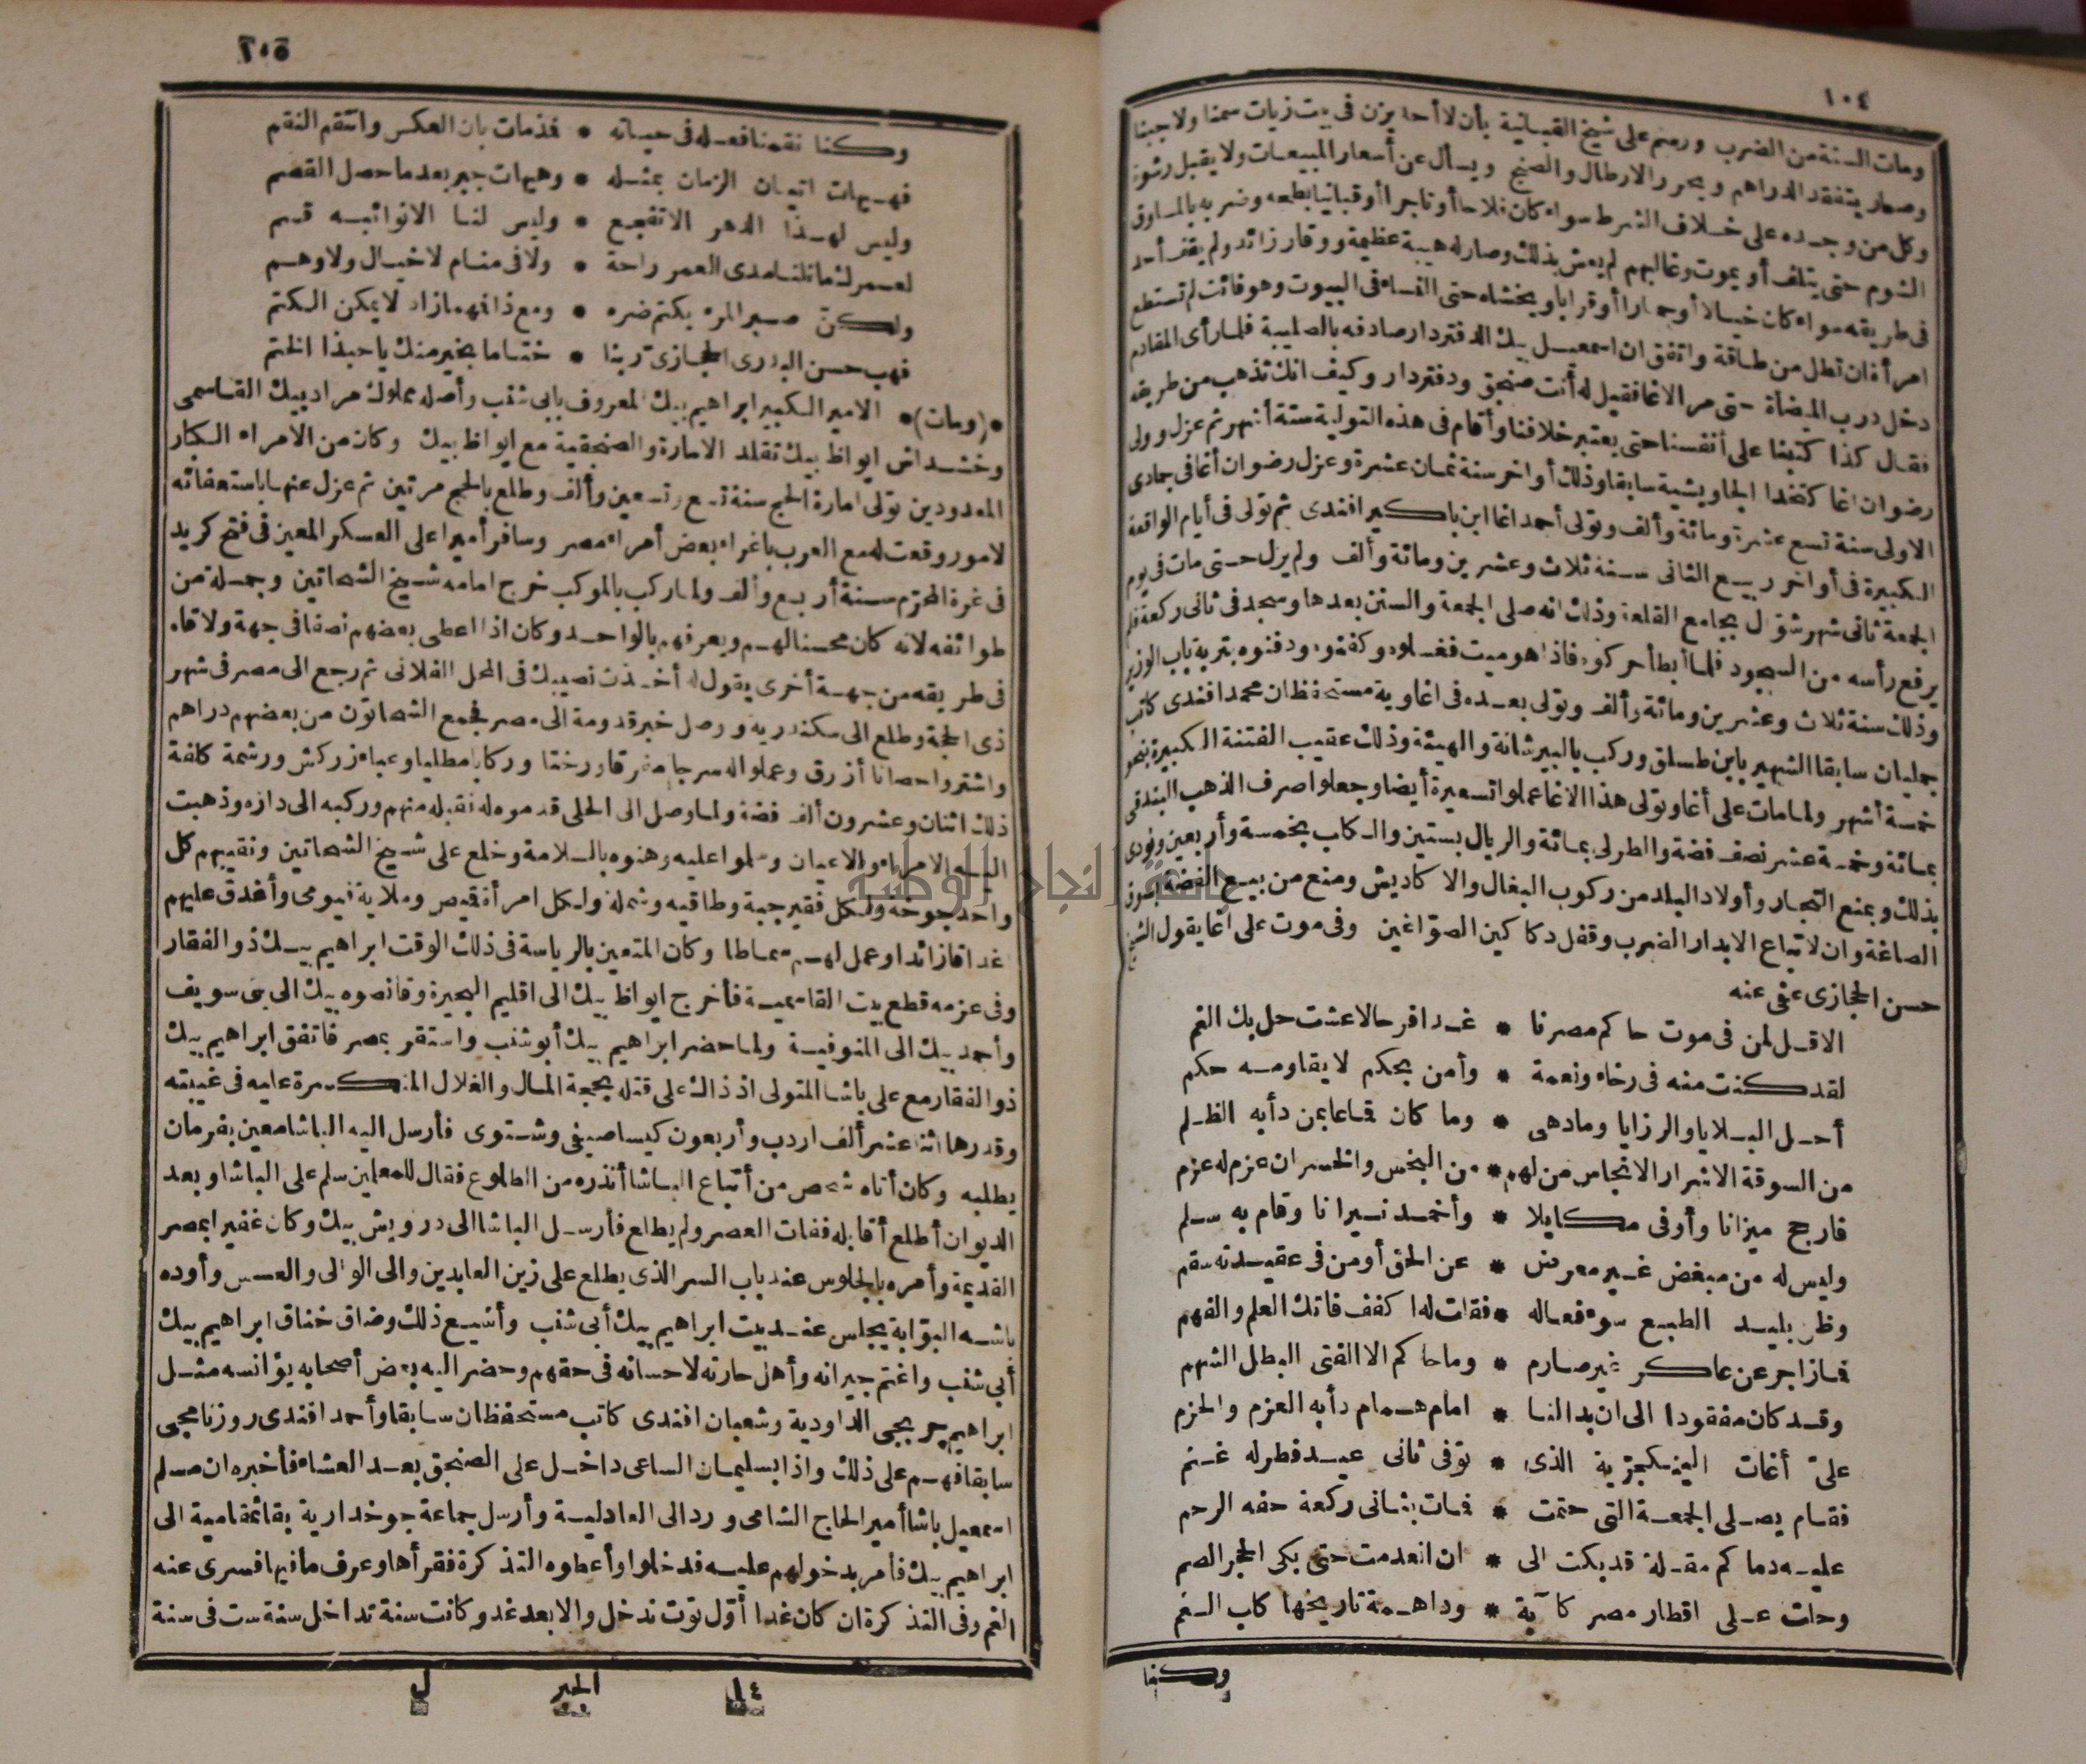 ١٠٤
ومات السنة من الضرب ورسم على شيخ القبانية بأن لا أحد يزن في بيت زيات سمنا ولا جبنا
وصار يتفقد الدراهم ويحرر الارطال والصنج ويسأل عن أسعار المبيعات ولا يقبل رشوة
وكل من وجده على خلاف الشرط سواء كان فلاحا أو تاجرا أو قبانيا بطحه وضربه بالمساوق
الشوم حتى يتلف أو يموت وغالبهم لم يعش بذلك وصار له هيبة عظيمة ووقار زائد ولم يقف أحد
في طريقه سواء كان خيالا أو حمارا أو قرابا ويخشاه حتى النساء في البيوت وهو فائت لم تستطع
امرأة ان تطل من طاقة واتفق ان اسمعيل بيك الدفتردار صادفه بالصليبة فلما رأى المقادم
دخل درب الميضأة حتى مر الاغا فقيل له أنت صنجق ودفتردار وكيف انك تذهب من طريقه
فقال كذا كتبنا على أنفسنا حتى يعتبر خلافنا وأقام في هذه التولية ستة أشهر ثم عزل وولى
رضوان اغا كتخدا الجاويشية سابقا وذلك أواخر سنة ثمان عشرة وعزل رضوان أغا في جمادى
الاولى سنة تسع عشرة ومائة وألف وتولى أحمد اغا ابن باكير افندى ثم تولى في أيام الواقعة
الكبيرة في أواخر ربيع الثانى سنة ثلاث وعشرين ومائة وألف ولم يزل حتى مات في يوم
الجمعة ثانى شهر شوّال بجامع القلعة وذلك انه صلى الجمعة والسنن بعدها وسجد في ثانى ركعة فلم
يرفع رأسه من السجود فلما أبطأ حركوه فاذا هو ميت فغسلوه وكفنوه ودفنوه بتربة باب الوزير
وذلك سنة ثلاث وعشرين ومائة وألف وتولى بعده في اغاوية مستحفظان محمد افندى كاتب
جمليان سابقا الشهير بابن طسلق وركب بالبيرشانة والهيئة وذلك عقيب الفتنة الكبيرة بنحو
خمسة أشهر ولما مات على أغا وتولى هذا الاغا عملوا تسعيرة أيضا وجعلوا صرف الذهب البندقى
بمائة وخمسة عشر نصف فضة والطرلى بمائة والريال بستين والكلب بخمسة وأربعين ونودى
بذلك وبمنع التجار وأولاد البلد من ركوب البغال والاكاديش ومنع من بيع الفضة بسوق
الصاغة وان لا تباع الا بدار الضرب وقفل دكاكين الصوّاغين وفى موت على أغا يقول الشيخ
حسن الحجازى عفى عنه
الا قل لمن في موت حاكم مصرنا * غدا فرحا لا عشت حل بك الغم
لقد كنت منه في رخاء ونعمة * وأمن بحكم لا يقاومه حكم
أحل البلايا والرزايا وما دهى * وما كان قماعا بمن دأبه الظلم
من السوقة الاشرار الانجاس من لهم * من البخس والخسران عزم له عزم
فارجح ميزانا وأوفى مكايلا * وأخمد نيرانا وقام به سلم
وليس له من مبغض غير معرض * عن الحق أو من في عقيدته سقم
وظن بليد الطبع سوء فعاله * فقلت له اكفف فاتك العلم والفهم
فما زاجر عن عاكر غير صارم * وما حاكم الا الفتى البطل الشهم
وقد كان مفقودا الى ان بدا لنا * امام همام دأبه العزم والحزم
علىّ أغات الينكجرية الذى * توفى ثانى عيد فطر له غنم
فقام يصلى الجمعة التى حتمت * فمات بثانى ركعة حفه الرحم
عليه دما كم مقلة قد بكت الى * ان انعدمت حتى بكى الحجر الصم
وحلت على اقطار مصر كآبة * وداهمة تاريخها كاب الغم
وكنا
وكنا نقمنا فعله في حياته * فذمات بان العكس وانتقم النقم
فهيهات اتيان الزمان بمثله * وهيهات جبر بعد ما حصل القصم
وليس لهذا الدهر الا تفجع * وليس لنا الا نوائبه قسم
لعمرك ما نلنا مدى العمر راحة * ولا في منام لا خيال ولا وهم
ولكنّ صبر المرء يكتم ضره * ومع ذا فهما زاد لا يمكن الكتم
فهب حسن البدرى الحجازىّ ربنا * ختاما بخير منك يا حبذا الختم
*(ومات)* الامير الكبير ابراهيم بيك المعروف بابى شنب وأصله مملوك مراد بيك القاسمى
وخشداش ايواظ بيك تقلد الامارة والصنجقية مع ايواظ بيك وكان من الامراء الكبار
المعدودين تولى امارة الحج سنة تسع وتسعين وألف وطلع بالحج مرتين ثم عزل عنها باستعفائه
لامور وقعت له مع العرب باغراء بعض أمراء مصر وسافر أميرا على العسكر المعين في فتح كريد
في غرة المحرّم سنة أربع وألف ولما ركب بالموكب خرج امامه شيخ الشحاتين وجملة من
طوائفه لانه كان محسنا لهم ويعرفهم بالواحد وكان اذا اعطى بعضهم نصفا في جهة ولاقاه
في طريقه من جهة أخرى يقول له أخذت نصيبك في المحل الفلانى ثم رجع الى مصر في شهر
ذى الحجة وطلع الى سكندرية ووصل خبر قدومه الى مصر فجمع الشحاتون من بعضهم دراهم
واشتروا حصانا أزرق وعملوا له سرجا مغرقا ورختا وركابا مطليا وعباء زركش ورشمة كلفة
ذلك اثنان وعشرون ألف فضة ولما وصل الى الحلى قدموه له فقبله منهم وركبه الى داره وذهبت
اليه الامراء والاعيان وسلموا عليه وهنوه بالسلامة وخلع على شيخ الشحاتين ونقيبهم كل
واحد جوخة ولكل فقير جبة وطاقية وشملة ولكل امرأة قميص وملاية فيومى وأغدق عليهم
غداقا زائدا وعمل لهم سماطا وكان المتعين بالرياسة في ذلك الوقت ابراهيم بيك ذو الفقار
وفى عزمه قطع بيت القاسمية فأخرج ايواظ بيك الى اقليم البحيرة وقانصوه بيك الى بنى سويف
وأحمد بيك الى المنوفية ولما حضر ابراهيم بيك أبو شنب واستقر بمصر فاتفق ابراهيم بيك
ذو الفقار مع على باشا المتولى اذ ذاك على قتله بحجة المال والغلال المنكسرة عليه في غيبته
وقدرها اثنا عشر ألف اردب وأربعون كيسا صيفى وشتوى فأرسل اليه الباشا معين بفرمان
بطلبه وكان أتاه شخص من أتباع الباشا أنذره من الطلوع فقال للمعلين سلم على الباشا وبعد
الديوان أطلع أقابله ففات العصر ولم يطلع فأرسل الباشا الى درويش بيك وكان غفيرا بمصر
القديمة وأمره بالجلوس عند باب السر الذى يطلع على زين العابدين والى الوالى والعسس وأوده
باشه البوّابة يجلس عند بيت ابراهيم بيك أبى شنب وأشيع ذلك وضاق خناق ابراهيم بيك
أبى شنب واغتم جيرانه وأهل حارته لاحسانه في حقهم وحضر اليه بعض أصحابه يؤانسه مثل
ابراهيم جربجى الداودية وشعبان افندى كاتب مستحفظان سابقا وأحمد افندى روزنامجى
سابقا فهم على ذلك واذا بسليمان الساعى داخل على الصنجق بعد العشاء فأخبره ان مسلم
اسمعيل باشا أمير الحاج الشامى ورد الى العادلية وأرسل جماعة جوخدارية بقائمقامية الى
ابراهيم بيك فأمر بدخولهم عليه فدخلوا وأعطوه التذكرة فقرأها وعرف ما فيها فسرى عنه
الغم وفى التذكرة ان كان غدا أوّل توت ندخل والا بعد غد وكانت سنة تداخل سنة ست في سنة
١٤ الجبر ل
جامعة النجاح الوطنية